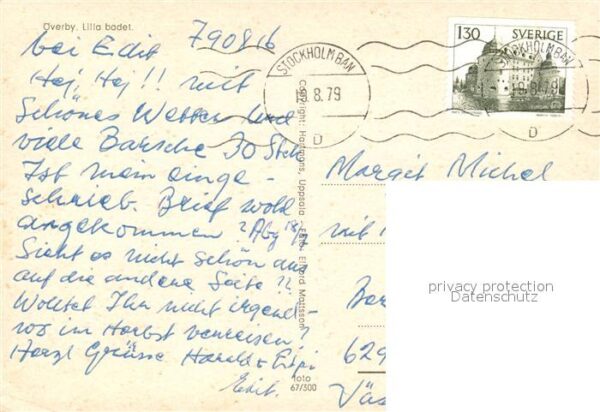 Överby. Lilla badet.
bei Edit 790816
Hej, Hej!! mit
schönes Wetter und
viele Barsche 30 Stck
Ist mein einge-
schrieb. Brief wohl
angekommen?
Sieht es nicht schön aus
auf die andere Seite??
Wolltet Ihr nicht irgend-
wo im Herbst verreisen?
Herzl Grüsse Harald +
Edit.
Copyright: Hartmans, Uppsala Foto: Elford Mattsson
foto
67/300
STOCKHOLM BAN
8.79
D
130 SVERIGE
STOCKHOLM BAN
8.79
D
Margit Michel
mit
629
Väs
privacy protection
Datenschutz